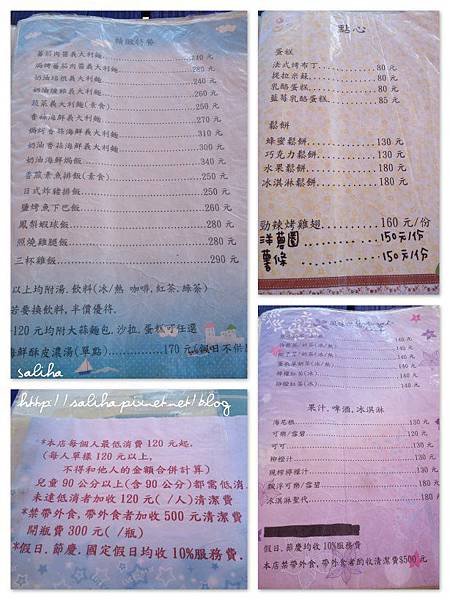 精緻特餐
蕃茄肉醬義大利麵 240 元
焗烤蕃茄肉醬義大利麵 280 元
奶油培根義大利麵 240 元
奶油燻雞義大利麵 260 元
蔬菜義大利麵(素食) 250 元
香蒜海鮮義大利麵 270 元
焗烤香蒜海鮮義大利麵 310 元
奶油香蒜海鮮義大利麵 300 元
奶油海鮮焗飯 340 元
香煎素魚排飯(素食) 250 元
日式炸豬排飯 250 元
鹽烤魚下巴飯 260 元
鳳梨蝦球飯 280 元
照燒雞腿飯 280 元
三杯雞飯 290 元
以上均附湯.飲料(冰/熱 咖啡.紅茶.綠茶)
若要換飲料,半價優待.
120元均附大蒜麵包.沙拉.蛋糕可任選
海鮮酥皮濃湯(單點) 170 元(假日不供
saliha
點心
蛋糕
法式烤布丁 80 元
提拉米蘇 80 元
乳酪蛋糕 80 元
藍莓乳酪蛋糕 85 元
鬆餅
蜂蜜鬆餅 130 元
巧克力鬆餅 130 元
水果鬆餅 180 元
冰淇淋鬆餅 180 元
勁辣烤雞翅 160 元/份
洋蔥圈 150元/份
薯條 150元/份
http://saliha.pixnet.net/blog
*本店每個人最低消費120元起.
(每人單樣120元以上,
不得和他人的金額合併計算)
兒童90公分以上(含90公分)都需低消.
未達低消者加收120元( /人)清潔費
*禁帶外食,帶外食者加收500元清潔費
開瓶費300元( /瓶)
*假日.節慶.國定假日均收10%服務費.
140 元
140 元
140 元
140 元
檸檬紅茶(冰) 140 元
140 元
果汁.啤酒.冰淇淋
海尼根 130 元
可樂/雪碧 130 元
可可 130 元
柳橙汁 130 元
現榨檸檬汁 130 元
飄浮可樂/雪碧 180 元
冰淇淋聖代 180 元
假日.節慶均收10%服務費
本店禁帶外食,帶外食者酌收清潔費$500元